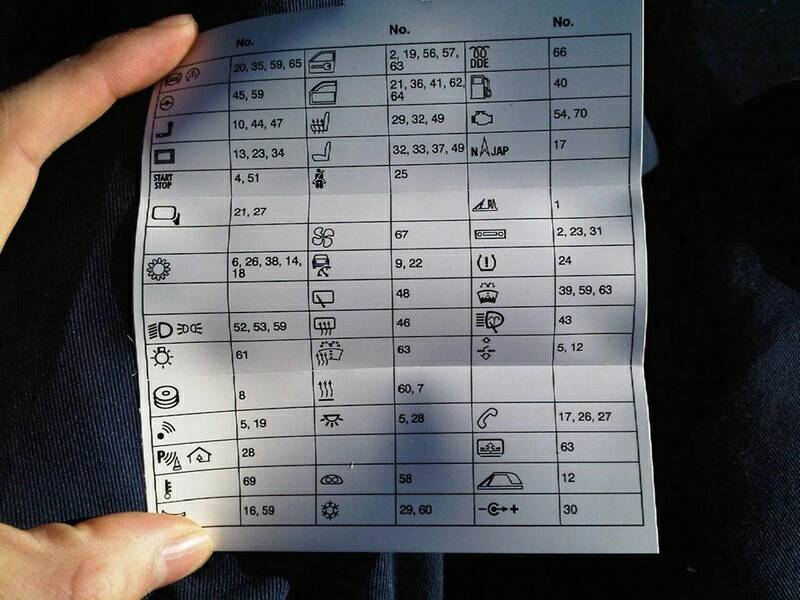 No. No. No.
20, 35, 59, 65 2, 19, 56, 57, DDE 66
63
45, 59 21, 36, 41, 62, 40
64
10, 44, 47 29, 32, 49 54, 70
13, 23, 34 32, 33, 37, 49 N JAP 17
START 4, 51 25
STOP
21, 27 1
67 2, 23, 31
6, 26, 38, 14, 9, 22 24
18
48 39, 59, 63
52, 53, 59 46 43
61 63 5, 12
8 60, 7
5, 19 5, 28 17, 26, 27
P 28 63
69 58 12
16, 59 29, 60 - + 30